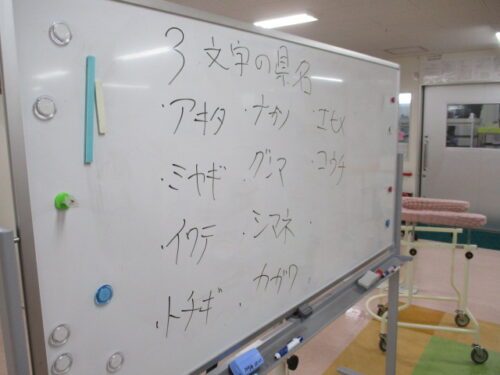 3文字の県名
・アキタ ・ナガノ ・エヒメ
・ミヤギ ・グンマ ・コウチ
・イワテ ・シマネ ・
・トチギ ・カガワ ・